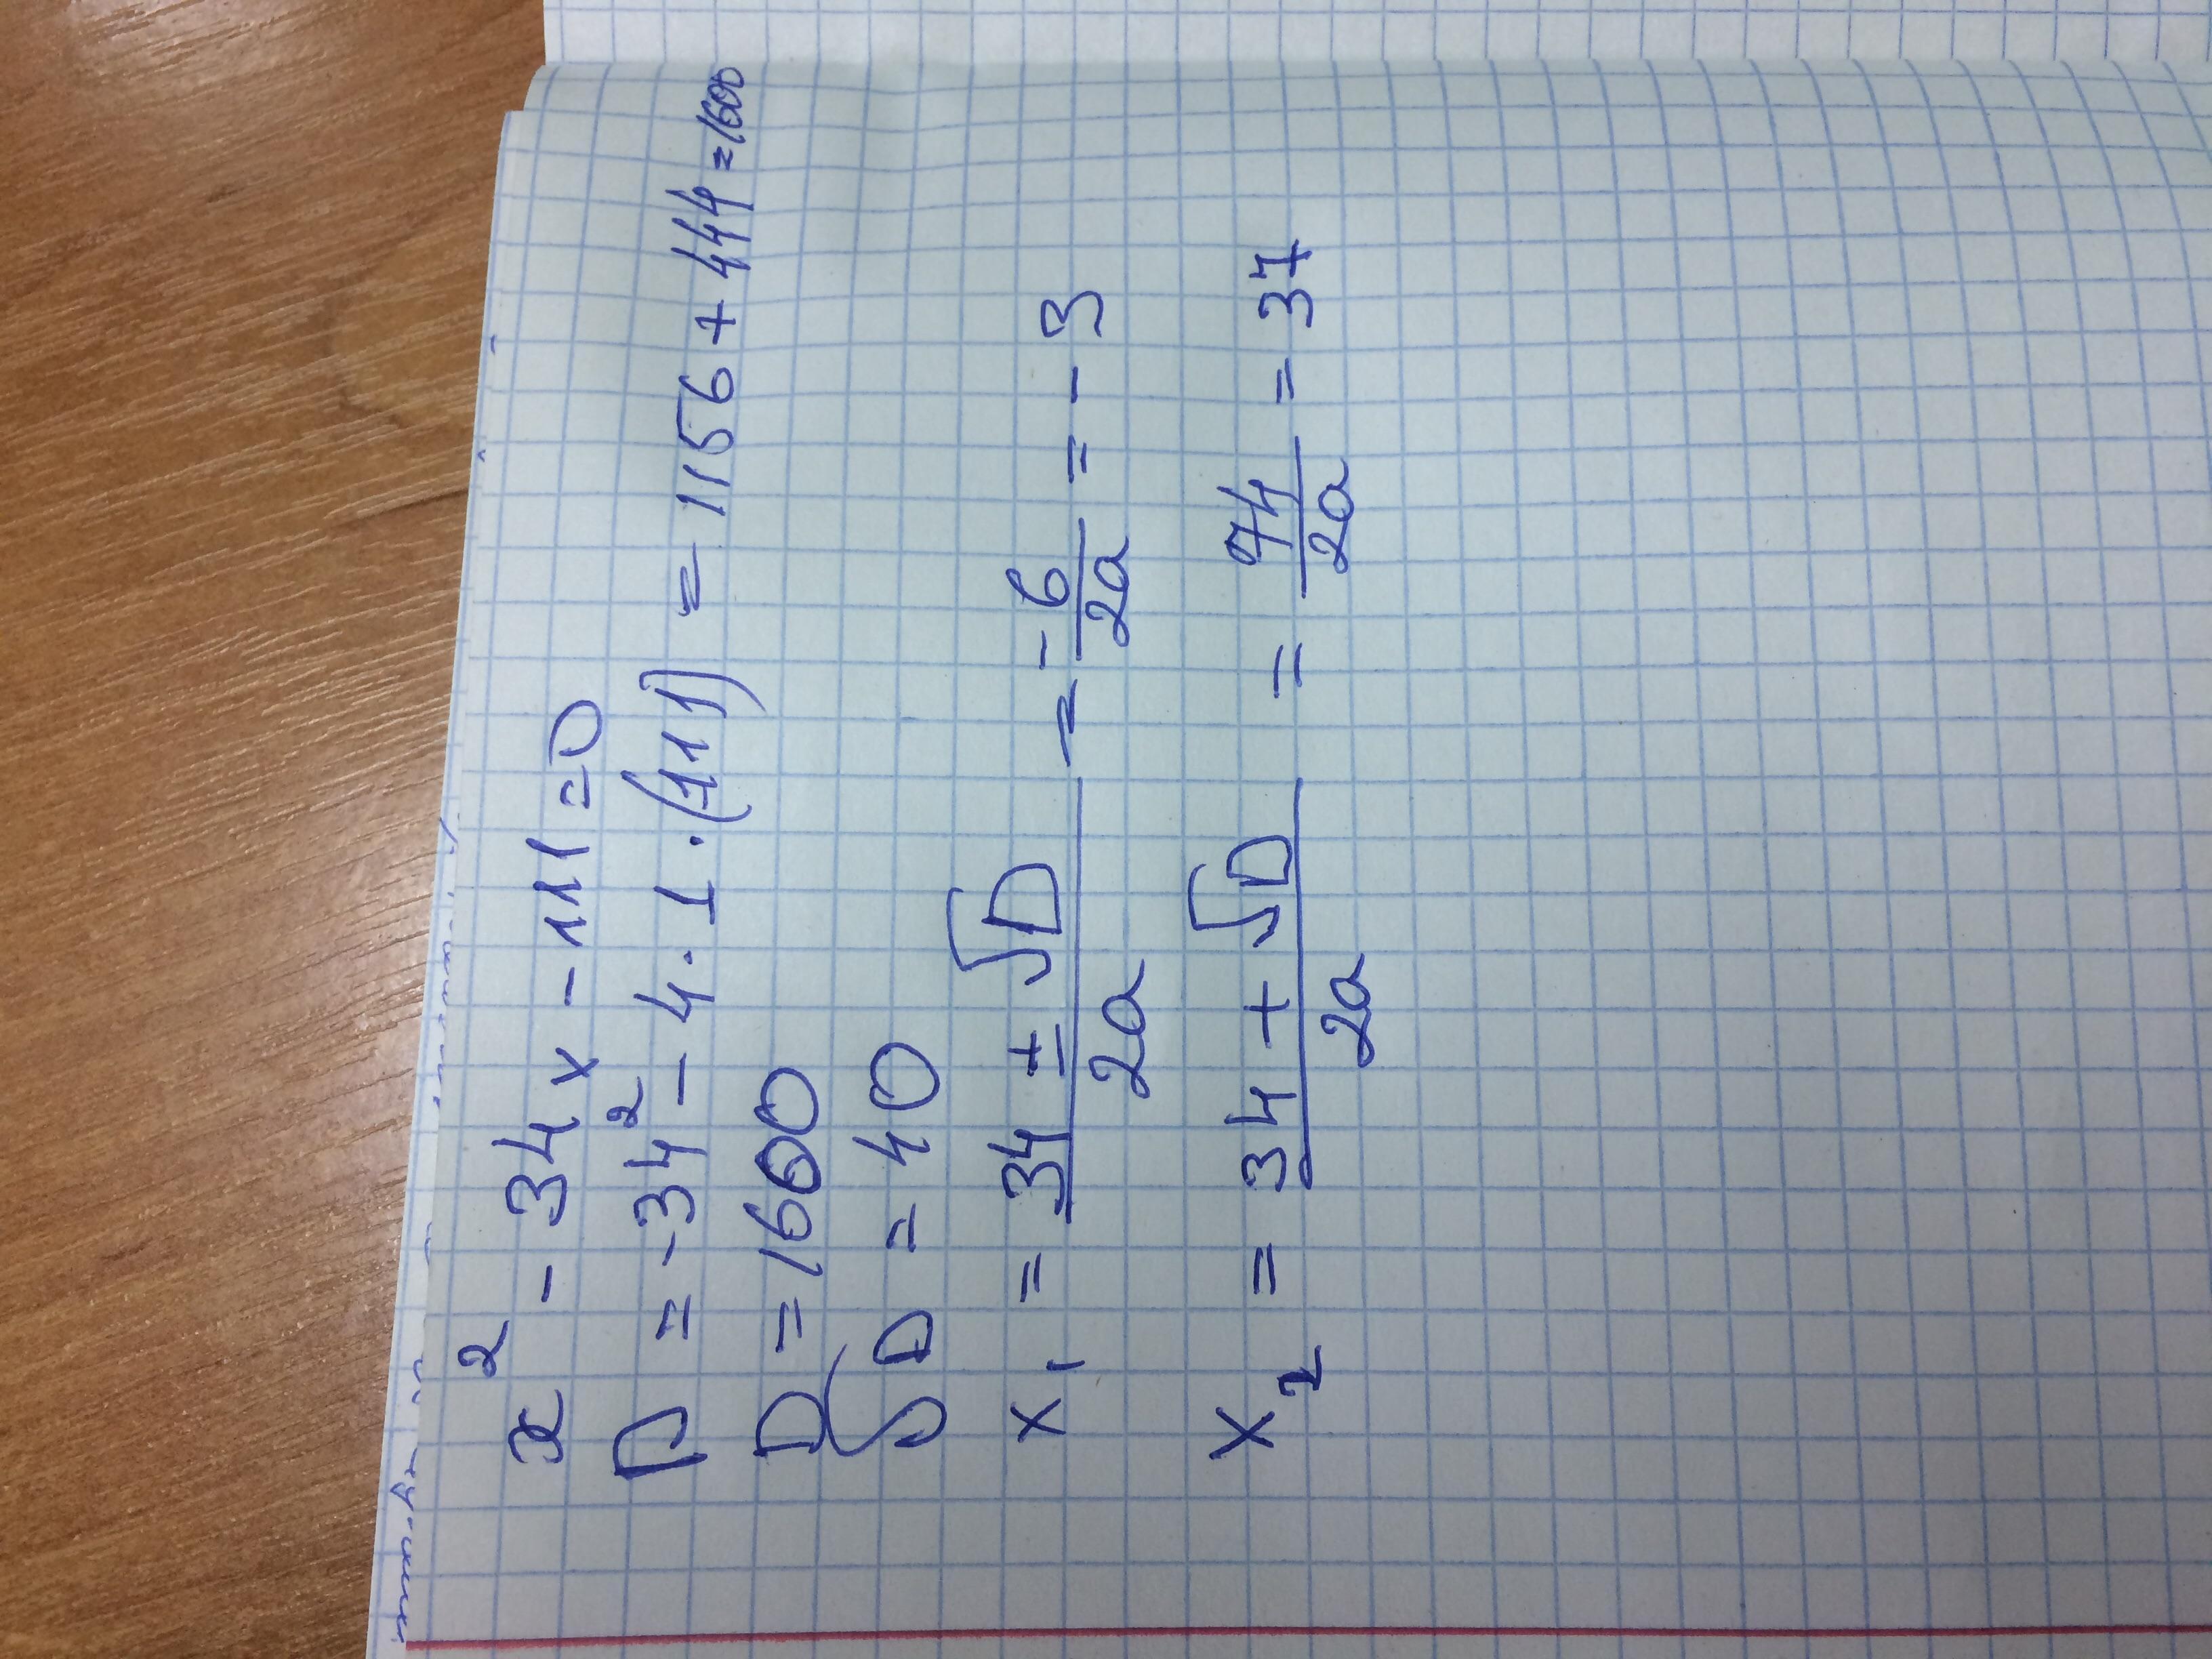 x² - 34x - 111 = 0
D = -34² - 4 · 1 · (111) = 1156 + 444 = 1600
D = 1600
√D = 40
x₁ = (34 ± √D)/2a = -6/2a = -3
x₂ = (34 + √D)/2a = 74/2a = 37